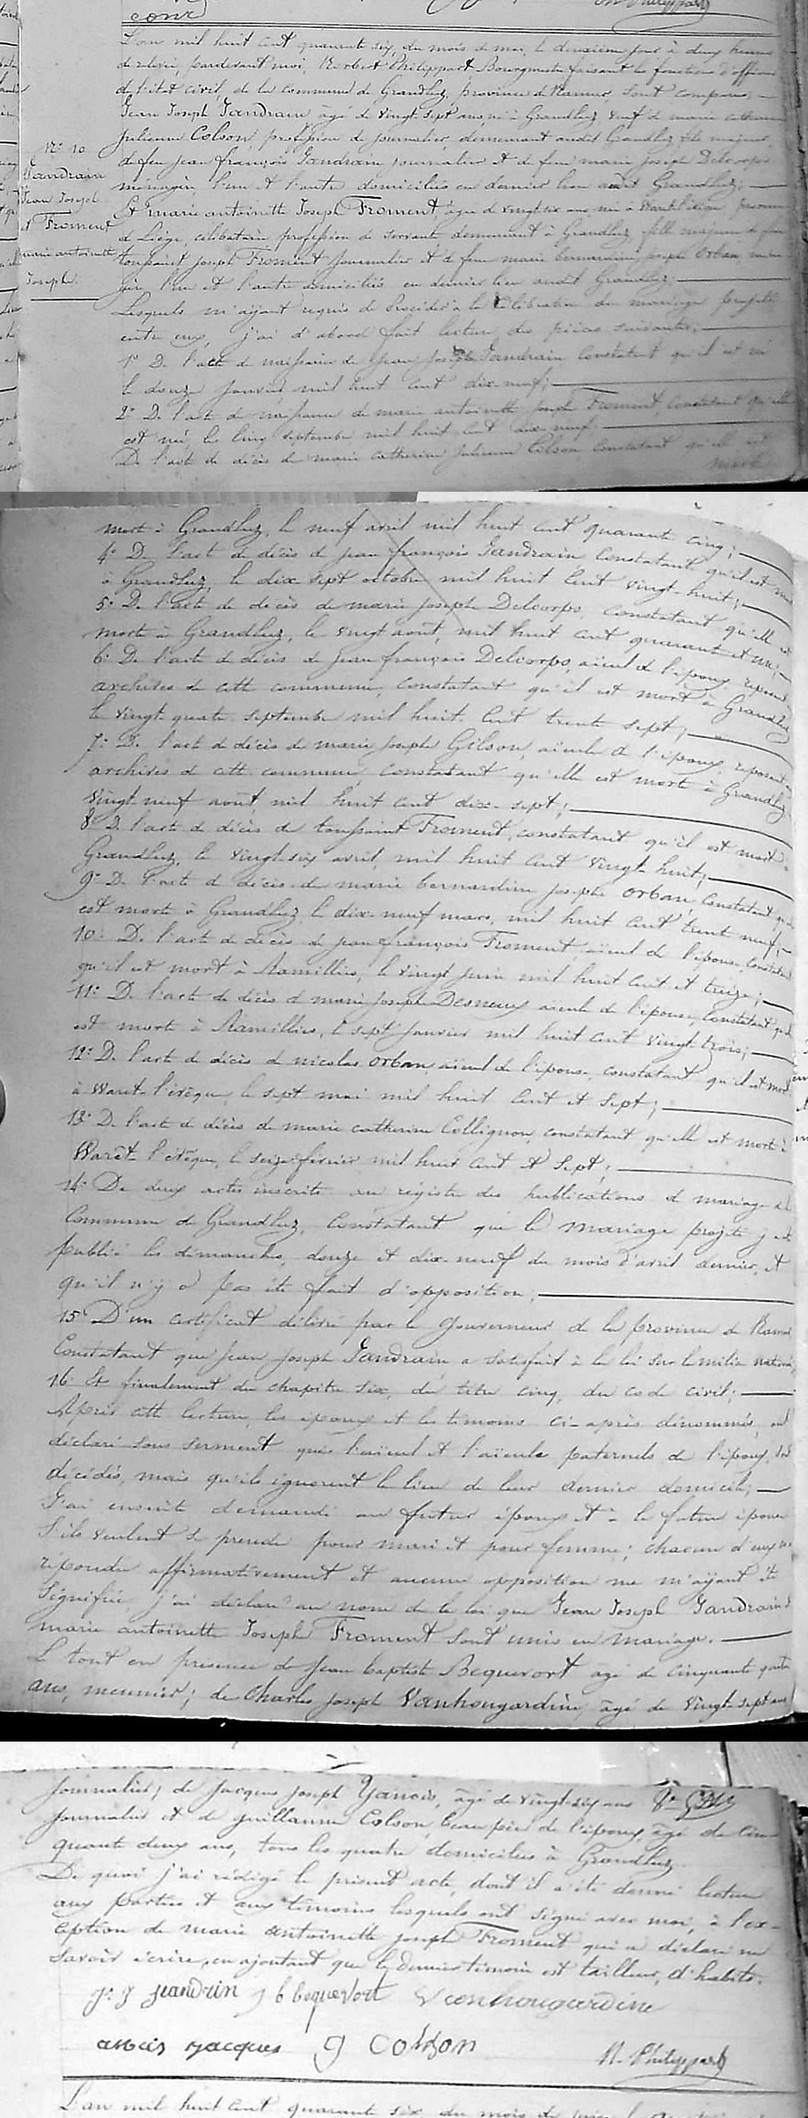 conr
N. Philippart
L'an mil huit cent quarante six, du mois de mai, le deuxième jour à deux heures
de relevée, pardevant moi, Norbert Philippart Bourgmestre faisant les fonctions d'officier
de l'état civil, de la commune de Grandlez, province de Namur, sont comparus,
Jean Joseph Jandrain âgé de vingt sept ans, né à Grandlez veuf de marie catherine
Julienne Colson, profession de journalier, demeurant audit Grandlez fils majeur
de feu jean françois Jandrain journalier et de feu marie joseph Delcorps
ménagère, l'un et l'autre domiciliés en dernier lieu audit Grandlez;
Et marie antoinette Joseph Froment, âgée de vingt six ans née à province
de Liège, célibataire profession de servante demeurant à Grandlez fille majeure de feu
toussaint joseph Froment journalier et de feu marie bernardine joseph Orban
l'un et l'autre domiciliés en dernier lieu audit Grandlez;
N° 10
Jandrain
Jean Joseph
et Froment
marie antoinette
Joseph.
Lesquels m'ayant requis de Procéder à la Célébration du mariage projeté
entre eux, j'ai d'abord fait lecture, des pièces suivantes;
1° D. l'acte de naissance de Jean Joseph Jandrain Constatant qu'il est né
le douze janvier mil huit cent dix-neuf;
2° D. l'acte de naissance de marie antoinette joseph Froment constatant qu'elle
est née, le cinq septembre mil huit cent dix-neuf.
D. l'acte de décès de marie catherine Julienne Colson, constatant qu'elle est
morte
morte à Grandlez, le neuf avril mil huit cent quarante cinq;
4° D. l'acte de décès de jean françois Jandrain Constatant qu'il est mort
à Grandlez, le dix sept octobre mil huit cent vingt-huit;
5° D. l'acte de décès de marie joseph Delcorps, constatant qu'elle est
morte à Grandlez, le vingt août, mil huit cent quarante et un;
6° D. l'acte de décès de jean françois Delcorps, aïeul de l'époux, reposant
archives de cette commune, constatant qu'il est mort à Grandlez
le vingt quatre septembre mil huit Cent trente sept;
7° D. l'acte de décès de marie joseph Gilson, aïeule de l'époux, reposant
archives de cette commune, constatant qu'elle est morte à Grandlez
vingt neuf août, mil huit cent dix-sept;
8° D. l'acte de décès de toussaint Froment, constatant qu'il est mort à
Grandlez, le vingt-six avril, mil huit cent vingt huit;
9° D. l'acte de décès de marie bernardine josephe Orban Constatant qu'elle
est morte à Grandlez, le dix-neuf mars, mil huit cent trente neuf,
10° D. l'acte de décès de jean françois Froment, aïeul de l'épouse, Constatant
qu'il est mort à Ramillies, le vingt juin mil huit cent et treize;
11° D. l'acte de décès de marie joseph Desneux aïeule de l'épouse, Constatant qu'elle
est morte à Ramillies, le sept janvier mil huit cent vingt trois;
12° D. l'acte de décès de nicolas Orban aïeul de l'épouse, constatant qu'il est mort
à Waret-l'évêque, le sept mai mil huit cent et sept;
13° D. l'acte de décès de marie catherine Collignon, constatant qu'elle est morte à
Waret l'évêque, le seize février mil huit cent et Sept;
14° De deux actes inscrits au régistre des publications de mariage de la
Commune de Grandlez, Constatant que le mariage projeté y est
publié les dimanches, douze et dix-neuf du mois d'avril dernier, et
qu'il n'y a pas été fait d'opposition;
15° D'un certificat délivré par le Gouverneur de la province de Namur
Constatant que Jean Joseph Jandrain a satisfait à la loi sur la milice nationale;
16° Et finalement du chapitre six, du titre cinq, du code civil;
Après cette lecture, les époux et les témoins ci-après dénommés, ont
déclaré sous serment que l'aïeul et l'aïeule paternels de l'époux, sont
décédés, mais qu'ils ignorent le lieu de leur dernier domicile;
J'ai ensuite demandé au futur époux et à la future épouse
S'ils veulent se prendre pour mari et pour femme; chacun d'eux
répondu affirmativement et aucune opposition ne m'ayant été
Signifiée, j'ai déclaré au nom de la loi que Jean Joseph Jandrain et
marie antoinette Joseph Froment sont unis en mariage.
Le tout en présence de Jean baptiste Bequevort âgé de cinquante quatre
ans, meunier; de Charles joseph Vanhougardine, âgé de vingt-sept ans
Journalier; de Jacques Joseph âgé de vingt-six ans
journalier et de guillaume Colson, beau père de l'époux, âgé de cin-
quante deux ans, tous les quatre domiciliés à Grandlez.
De quoi j'ai rédigé le présent acte, dont il a été donné lecture
aux parties et aux témoins lesquels ont signé avec moi, à l'ex-
ception de marie antoinette joseph Froment qui a déclaré ne
savoir écrire, en ajoutant que le dernier témoin est tailleur, d'habits.
j. j jeandrin J b bequevort vconhougardine
jacques g Colson N. Philippart
L'an mil huit cent quarante six, du mois de